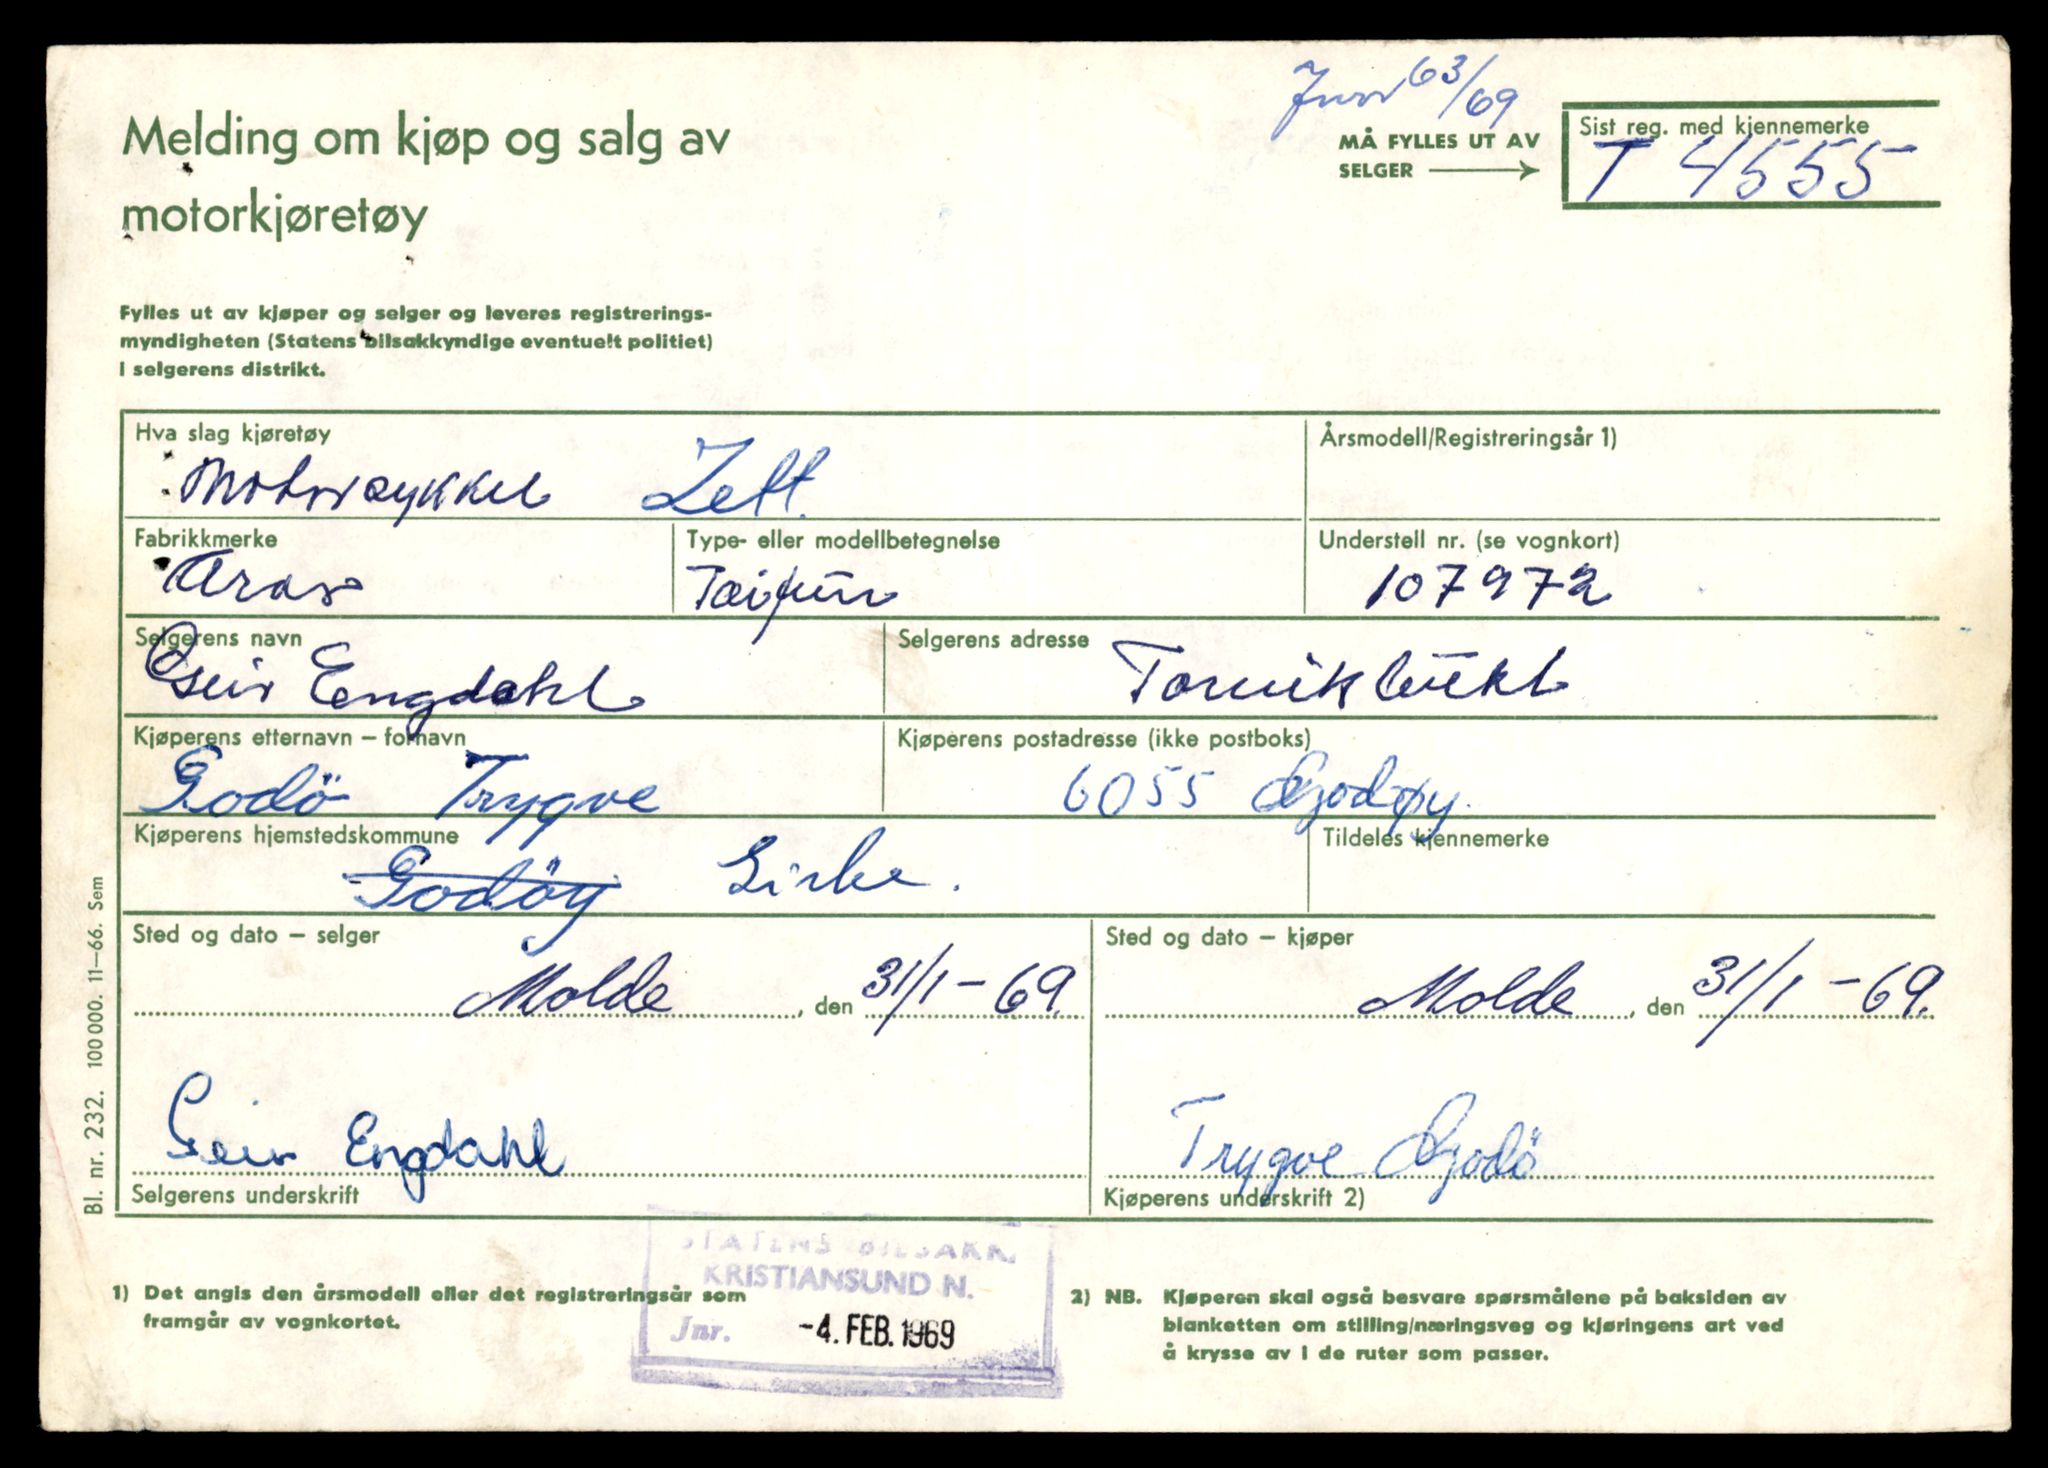 Jnr 63/69
Melding om kjøp og salg av
motorkjøretøy
MÅ FYLLES UT AV
SELGER
Sist reg. med kjennemerke
T 4555
Fylles ut av kjøper og selger og leveres registrerings-
myndigheten (Statens bilsakkyndige eventuelt politiet)
i selgerens distrikt.
Hva slag kjøretøy
Motorsykkel Lett.
Årsmodell/Registreringsår 1)
Fabrikkmerke
Type- eller modellbetegnelse
Taifun
Understell nr. (se vognkort)
107972
Selgerens navn
Geir Engdahl
Selgerens adresse
Kjøperens etternavn – fornavn
Godö Trygve
Kjøperens postadresse (ikke postboks)
6055 Godøy.
Kjøperens hjemstedskommune
Godöy Giske.
Tildeles kjennemerke
Sted og dato – selger
Molde, den 31/1 – 69.
Sted og dato – kjøper
Molde, den 31/1 – 69.
Geir Engdahl
Selgerens underskrift
Trygve Godö
Kjøperens underskrift 2)
Bl. nr. 232. 100 000. 11–66. Sem
STATENS BILSAKK.
KRISTIANSUND N.
Jnr. -4. FEB. 1969
1) Det angis den årsmodell eller det registreringsår som
framgår av vognkortet.
2) NB. Kjøperen skal også besvare spørsmålene på baksiden av
blanketten om stilling/næringsveg og kjøringens art ved
å krysse av i de ruter som passer.